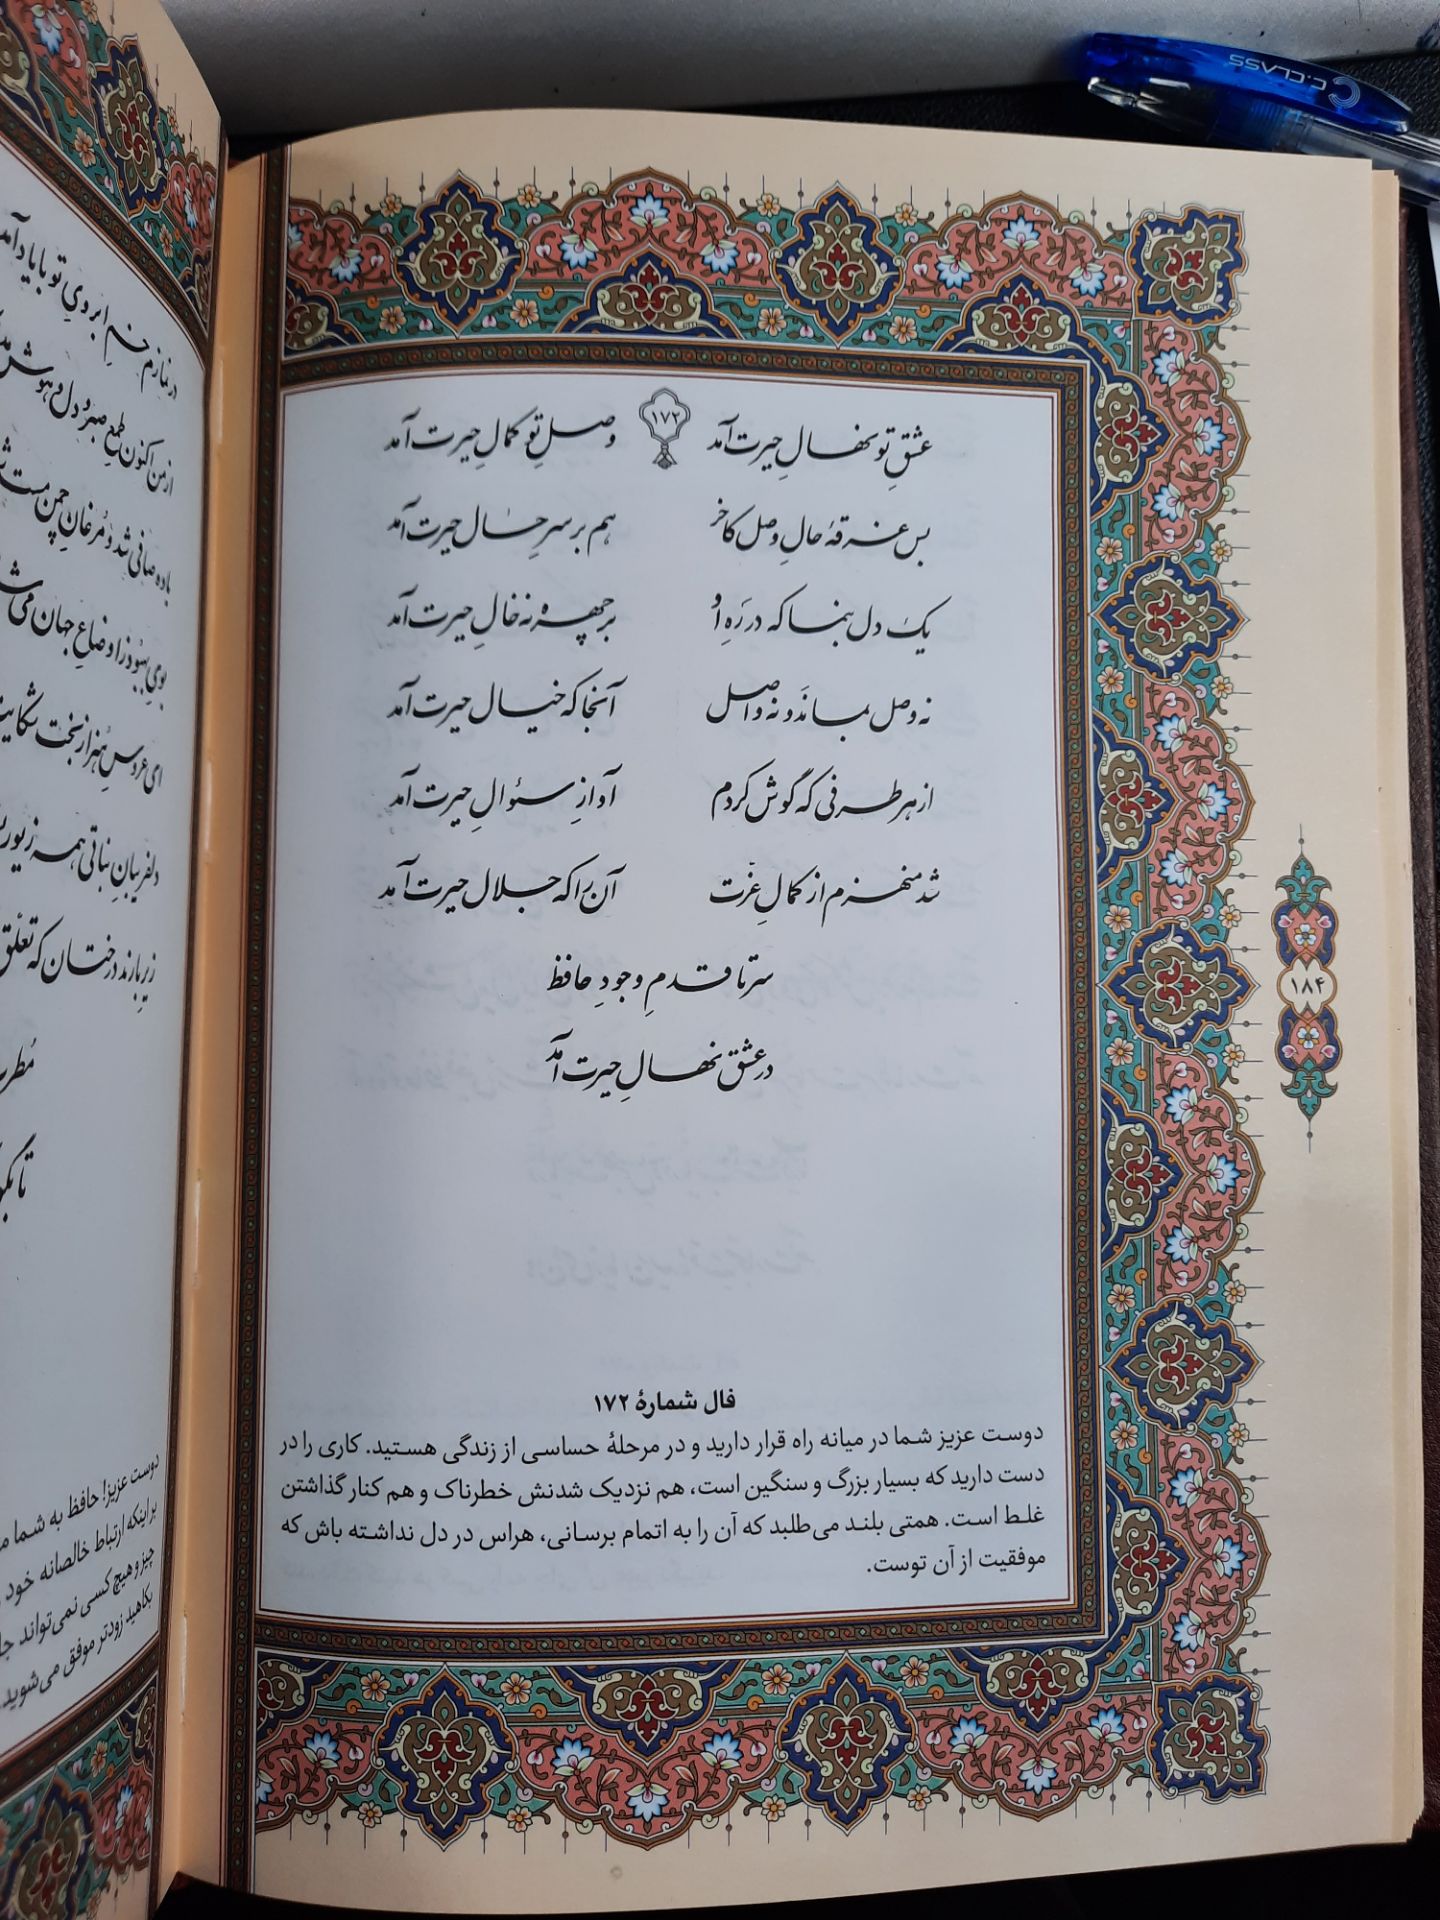 C.CLASS
۱۷۲
عشقِ تو نهالِ حیرت آمد وصلِ تو کمالِ حیرت آمد
بس غرقهٔ حالِ وصل کآخر هم بر سرِ حال حیرت آمد
یک دل بنما که در رَهِ او بر چهره نه خالِ حیرت آمد
نه وصل بماند و نه واصل آنجا که خیال حیرت آمد
از هر طرفی که گوش کردم آوازِ سؤالِ حیرت آمد
شد منهزم از کمالِ عزّت آن را که جلال حیرت آمد
سر تا قدمِ وجودِ حافظ
در عشق نهالِ حیرت آمد
۱۸۴
فال شمارهٔ ۱۷۲
دوست عزیز شما در میانه راه قرار دارید و در مرحلهٔ حساسی از زندگی هستید. کاری را در
دست دارید که بسیار بزرگ و سنگین است، هم نزدیک شدنش خطرناک و هم کنار گذاشتن
غلط است. همتی بلند می‌طلبد که آن را به اتمام برسانی، هراس در دل نداشته باش که
موفقیت از آن توست.
در نمازم خمِ ابروی تو با یاد آمد
از من اکنون طمعِ صبر و دل و هوش
باده صافی شد و مرغانِ چمن مست
بوی بهبود ز اوضاعِ جهان می
ای عروسِ هنر از بخت شکایت
دلفریبانِ نباتی همه زیور
زیر بارند درختان که تعلّق
مطرب
تا بگو
دوست عزیز! حافظ به شما
بر اینکه ارتباط خالصانه خود
چیز و هیچ کسی نمی‌تواند
بکاهید زودتر موفق می‌شوید.